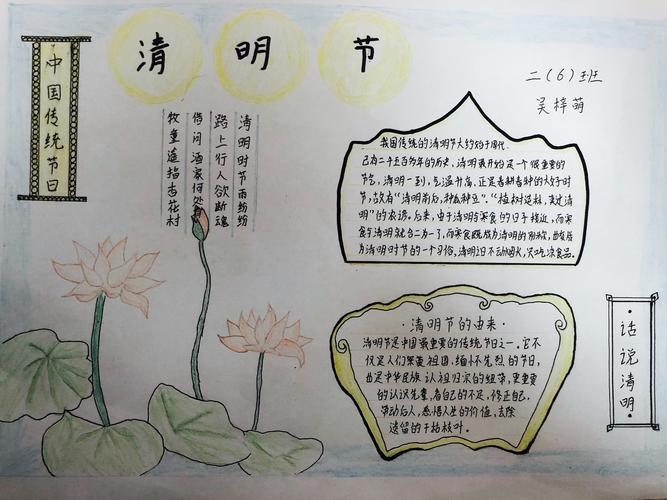 清明节
中国传统节日
二(6)班
吴梓萌
清明时节雨纷纷
路上行人欲断魂
借问酒家何处
牧童遥指杏花村
我国传统的清明节大约始于周代,
已有二千五百多年的历史,清明最开始是一个很重要的
节气,清明一到,气温升高,正是春耕春种的大好时
节,故有“清明前后,种瓜种豆”。“植树造林,莫过清
明”的农谚。后来,由于清明与寒食的日子接近,而寒
食与清明就合二为一了,而寒食既成为清明的别称,也变成
为清明时节的一个习俗,清明日不动烟火,只吃凉食品。
·清明节的由来·
清明节是中国最重要的传统节日之一,它不
仅是人们祭奠祖国,缅怀先烈的节日,
也是中华民族认祖归宗的纽带,更重要
的认识先辈,看自己的不足,修正自己,
带动后人,感悟人生的价值,去除
遗留的干枯枝叶。
·话说清明·